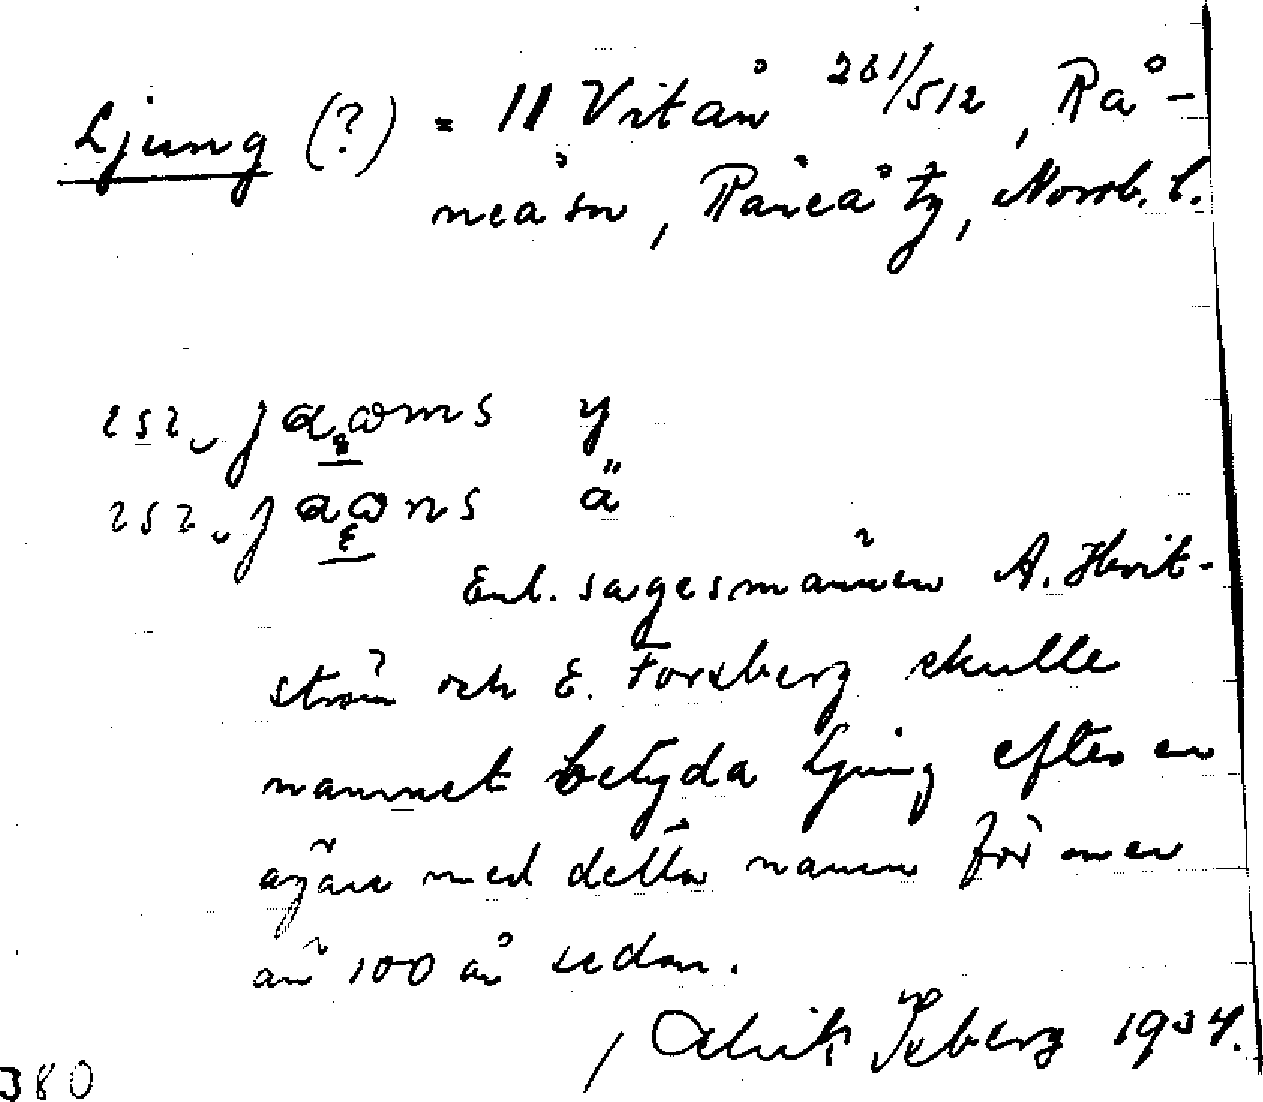 Ljung (?) = 11 Vitån 261/512, Rå-
neå sn, Råneå tg, Norrb. l.
y
ä
Enl. sagesmännen A. Hvit-
ström och E. Forsberg skulle
namnet betyda Ljung efter en
ägare med detta namn för mer
än 100 år sedan.
Seberg 1934.
380